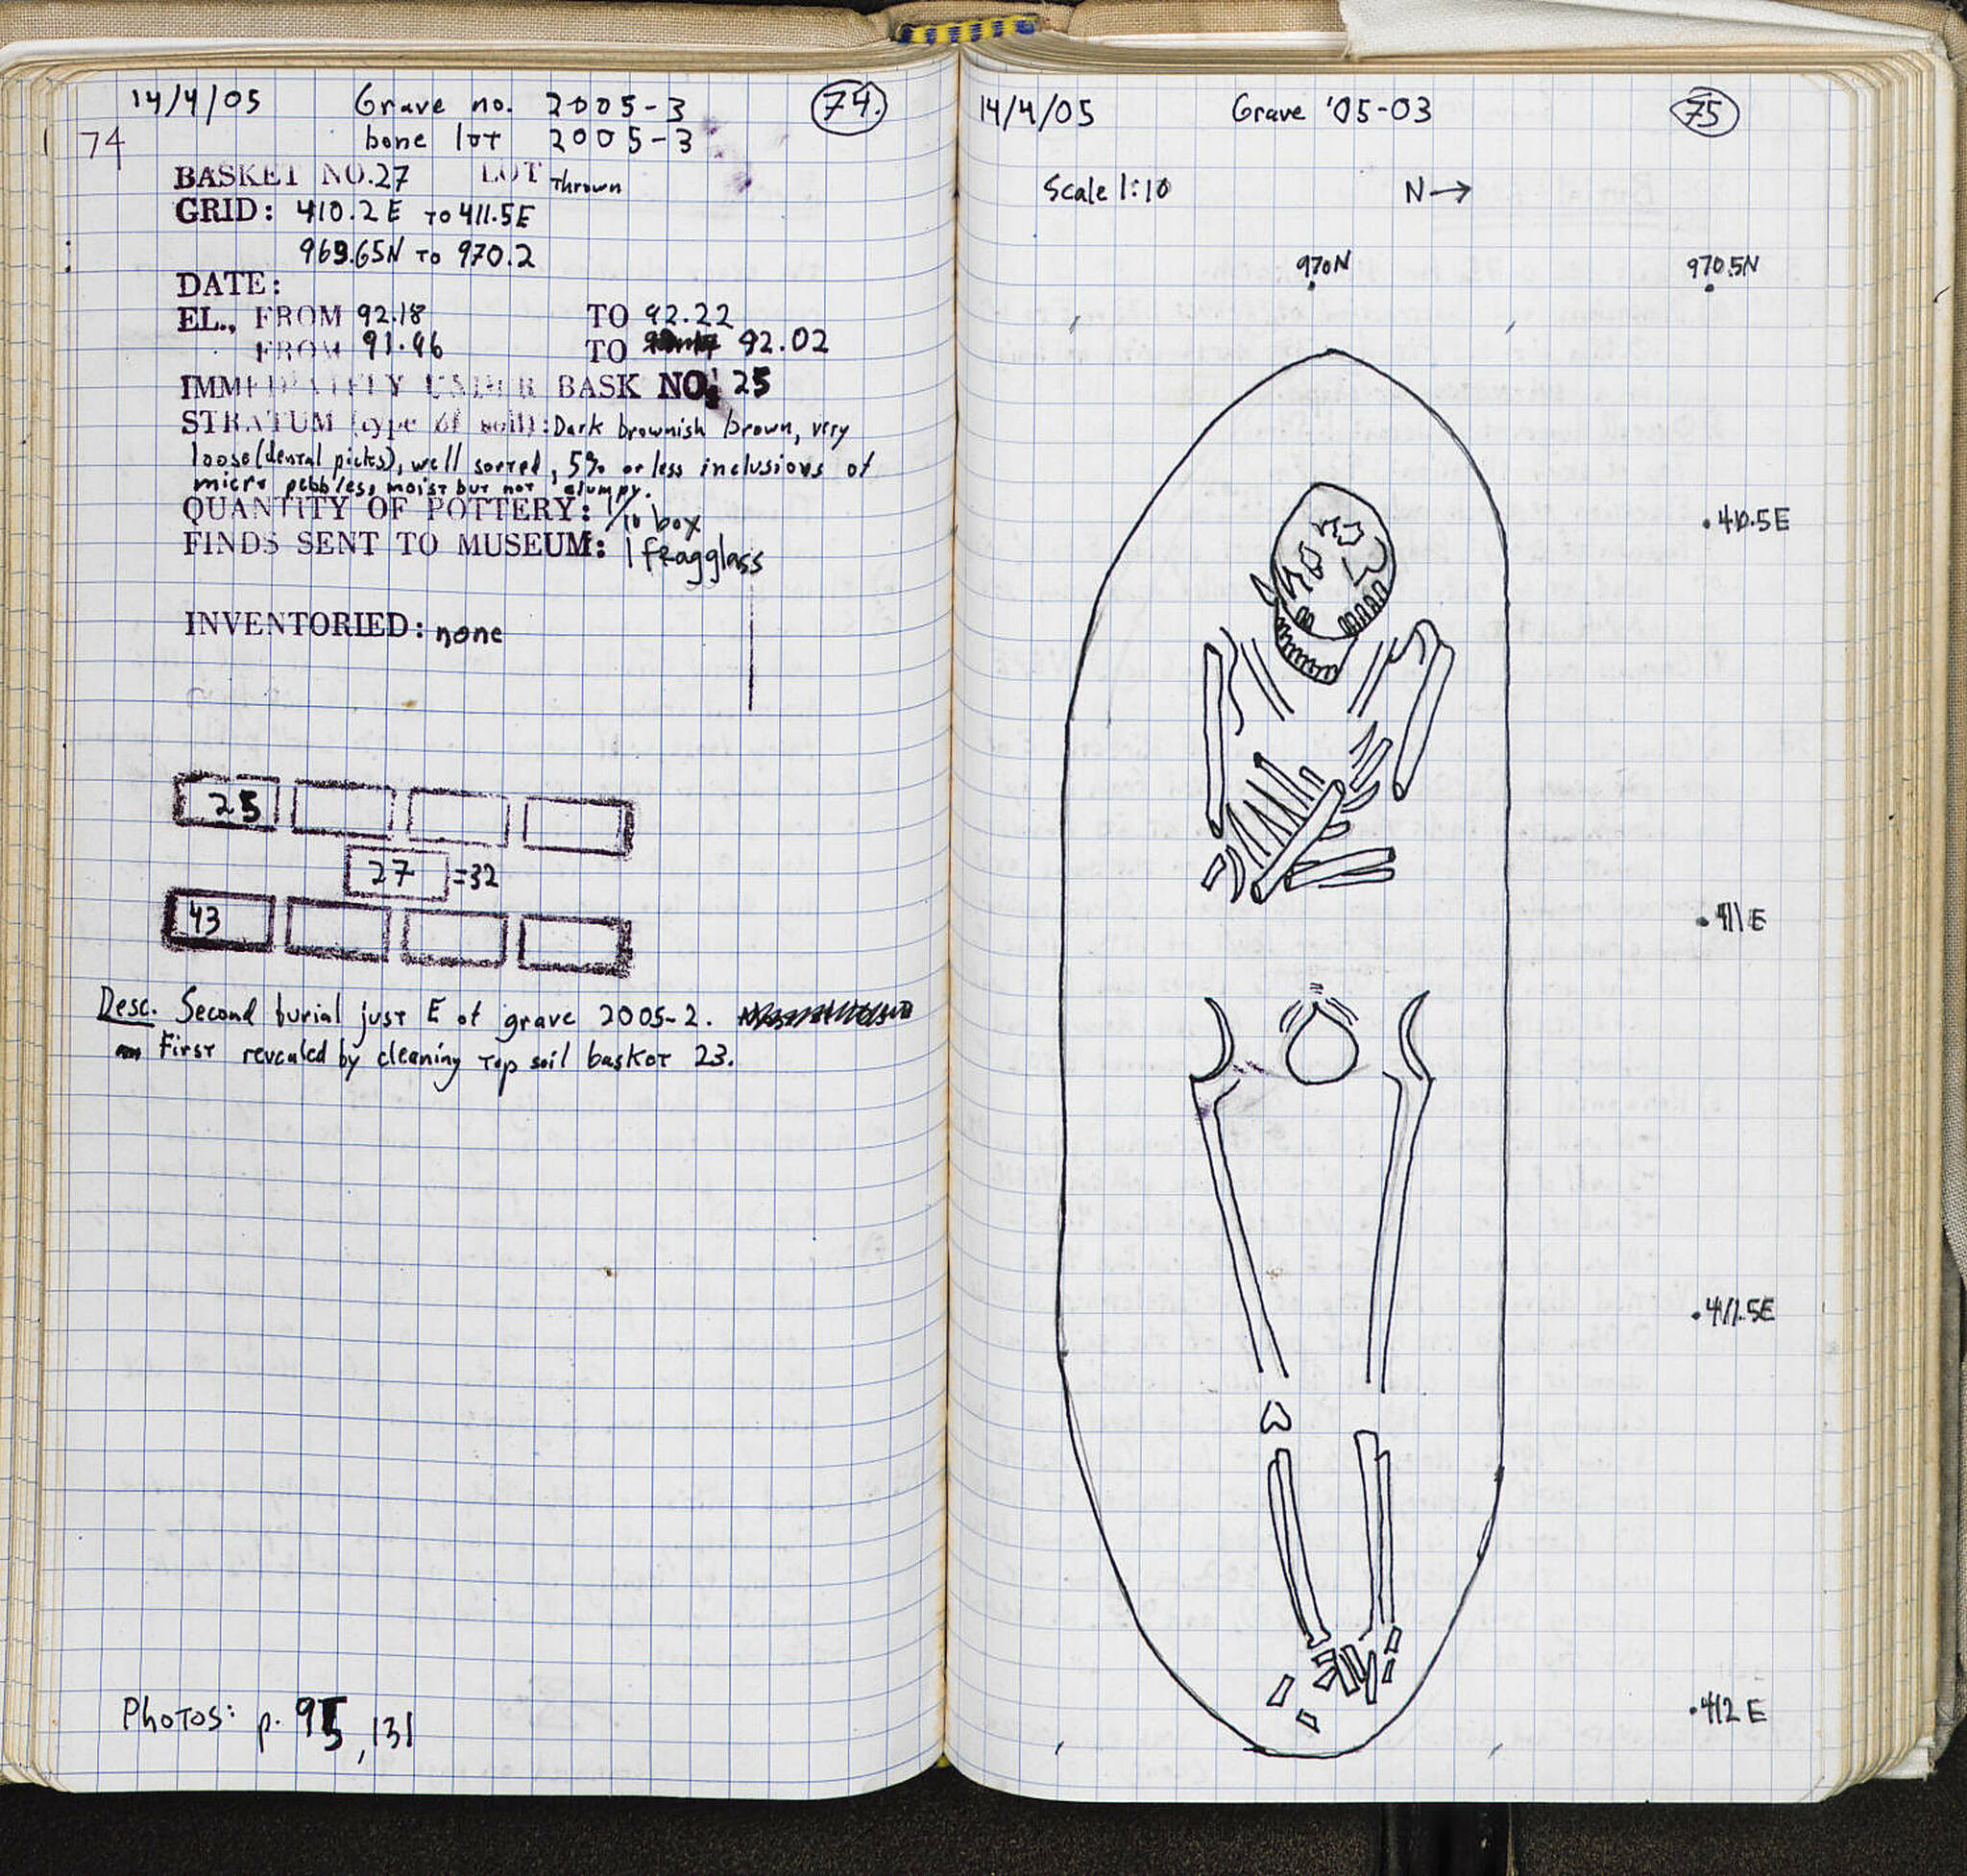 14/4/05 Grave no. 2005-3 74.
74 bone lot 2005-3
BASKET NO. 27 LOT Thrown
GRID: 410.2E TO 411.5E
969.65N TO 970.2
DATE:
EL., FROM 92.18 TO 92.22
FROM 91.96 TO 92.02
IMMEDIATELY UNDER BASK NO. 25
STRATUM (type of soil): Dark brownish brown, very
loose (dental picks), well sorted, 5% or less inclusions of
micro pebbles, moist but not clumpy.
QUANTITY OF POTTERY: 1/10 box
FINDS SENT TO MUSEUM: 1 frag glass
INVENTORIED: none
25
27 =32
43
Desc. Second burial just E of grave 2005-2.
First revealed by cleaning top soil basket 23.
Photos: p. 95, 131
14/4/05 Grave '05-03 75
Scale 1:10 N→
970N 970.5N
410.5E
411E
411.5E
412E